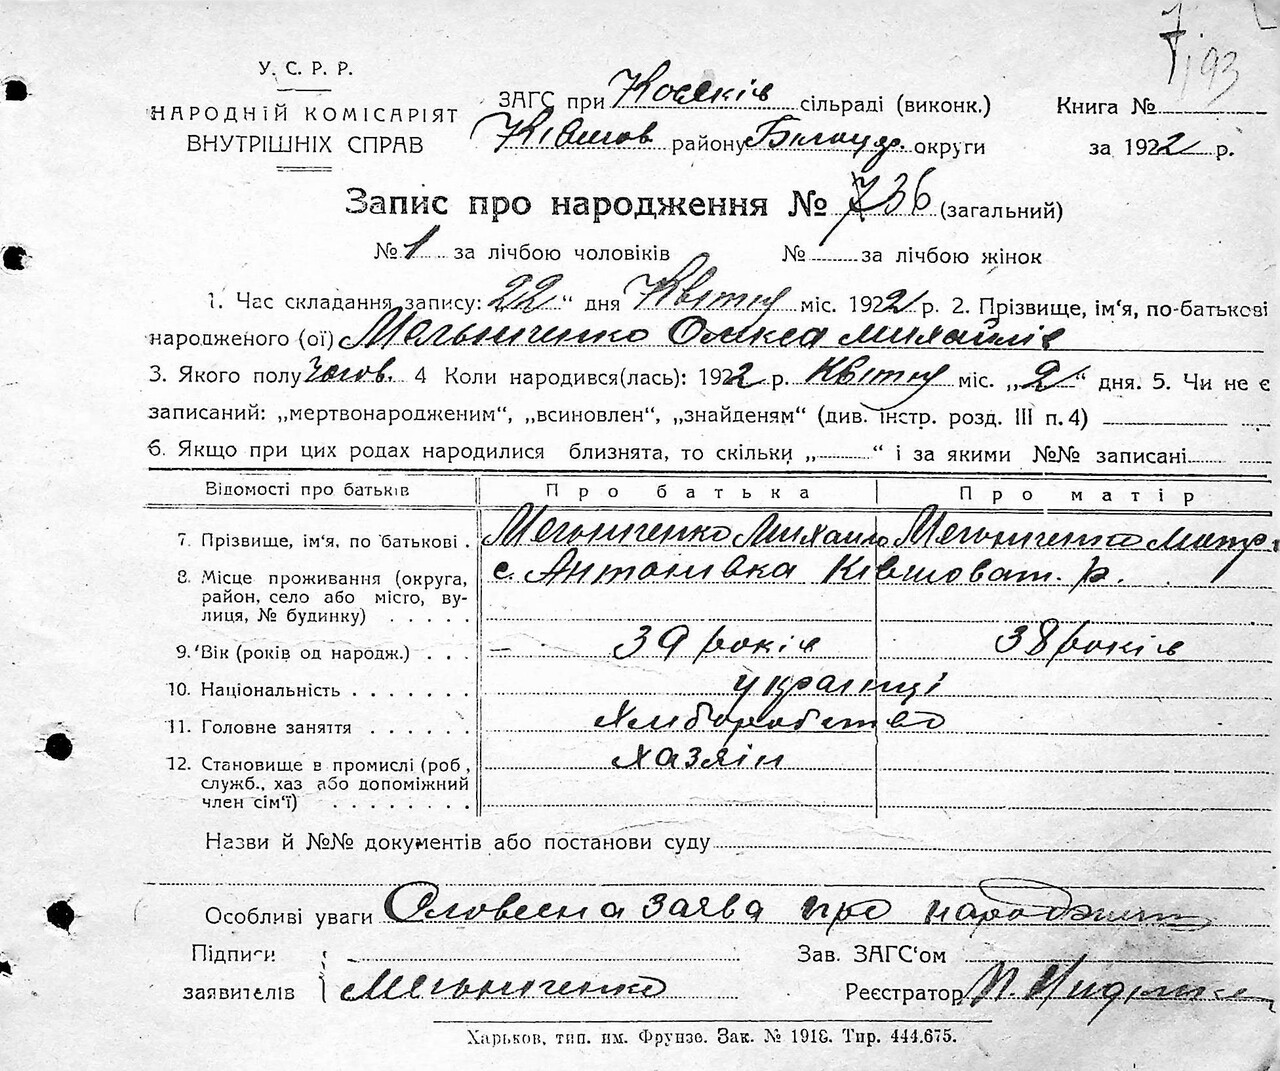 7
193
У. С. Р. Р.
НАРОДНІЙ КОМІСАРІЯТ
ВНУТРІШНІХ СПРАВ
ЗАГС при Косяків сільраді (виконк.)
району Білоц. округи
Книга №
за 1922 р.
Запис про народження № 736 (загальний)
№ 1 за лічбою чоловіків № за лічбою жінок
1. Час складання запису: 22" дня Квітня міс. 1922 р. 2. Прізвище, ім'я, по-батькові
народженого (ої) Мельниченко Олекса Михайлів
3. Якого полу Чолов. 4 Коли народився(лась): 1922 р. Квітня міс. „2" дня. 5. Чи не є
записаний: „мертвонародженим", „всиновлен", „знайденям" (див. інстр. розд. III п. 4)
6. Якщо при цих родах народилися близнята, то скільки „ " і за якими №№ записані
Відомості про батьків Про батька Про матір
7. Прізвище, ім'я, по батькові . Мельниченко Михайло Мельниченко Мотр.
8. Місце проживання (округа, с. Антонівка Ківшоват. р.
район, село або місто, ву-
лиця, № будинку) . . . . .
9. Вік (років од народж.) . . . 39 років 38 років
10. Національність . . . . . . . українці
11. Головне заняття . . . . . . Хліборобство
12. Становище в промислі (роб., хазяїн
служб., хаз або допоміжний
член сім'ї) . . . . . . . .
Назви й №№ документів або постанови суду
Особливі уваги Словесна заява про народження
Підписи Зав. ЗАГС'ом
заявителів Мельниченко Реєстратор
Харьков, тип. им. Фрунзе. Зак. № 1918. Тир. 444.675.